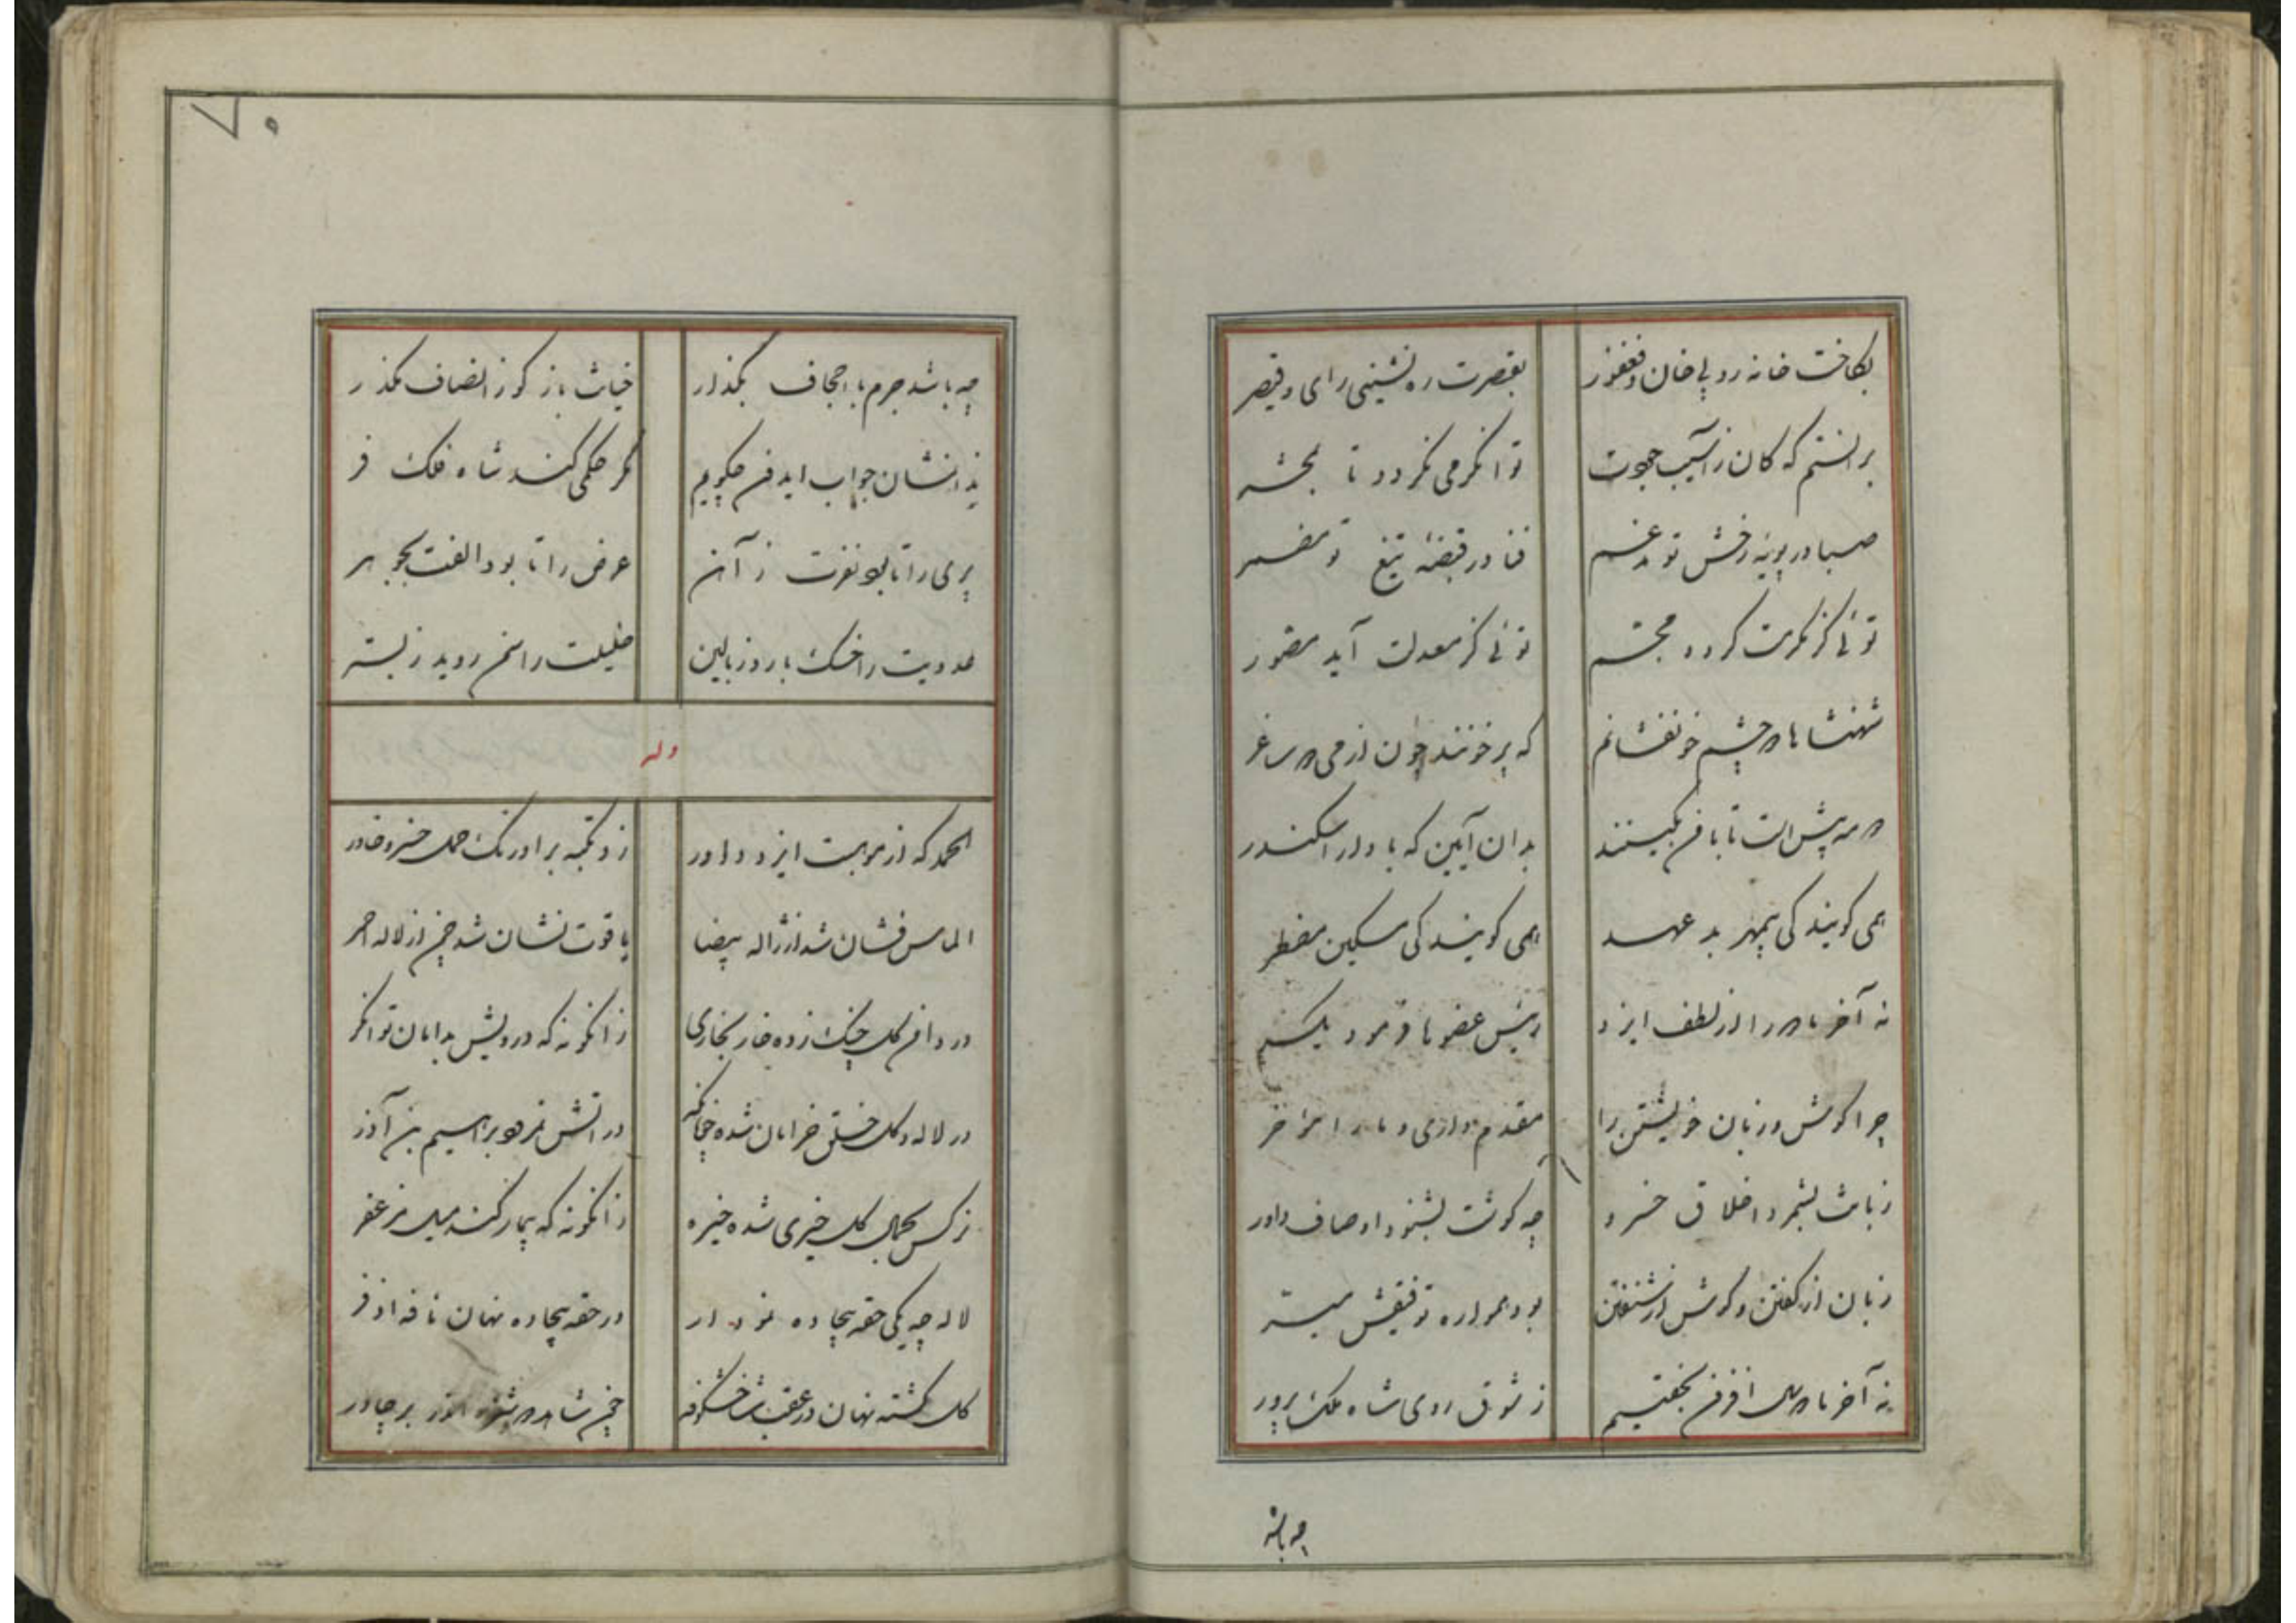 بکاخت خانه روبی خان و فغفور بقصرت ره نشینی رای و قیصر
برانستم که کان ز آسیب جودت توانگر می نگردد تا بمحشر
صبا در پویه رخش تو مدغم فنا در قبضه تیغ تو مضمر
توئی کز مکرمت گردد مجسم توئی کز معدلت آید مصور
شهنشاها دو چشم خونفشانم که پر خونند چون از می دو ساغر
دو مه پیش است تا با من بکینند بدان آیین که با دارا سکندر
همی گویند کی بیمهر بد عهد همی گویند کی مسکین مضطر
نه آخر ما دو را از لطف ایزد رئیس عضوها فرمود یکسر
چرا گوش و زبان خویشتن را مقدم داری و ما را مؤخر
زبانت بشمرد اخلاق خسرو چه گوشت بشنود اوصاف داور
زبان از گفتن و گوش از شنفتن بود همواره توفیقش میسر
نه آخر ما دو سال افزون نخفتیم ز شوق روی شاه ملک پرور
چه باشد
۷۰
چه باشد جرم ما اجحاف بگذار خیانت باز گو ز انصاف مگذر
ندانمشان جواب ایدون چگویم مگر حکمی کند شاه فلک فر
پری را تا بود نفرت ز آهن عرض را تا بود الفت بجوهر
عدویت را خسک بارد ز بالین خلیلت را سمن روید ز بستر
وله
الحمد که از موهبت ایزد داور زد تکیه بر اورنگ حمل خسرو خاور
الماس فشان شد از ژاله بیضا یاقوت نشان شد چمن از لاله احمر
در دامن گل چنگ زده خار بخاری زانگونه که درویش بدامان توانگر
در لاله و گل خلق خرامان شده چونانکه در آتش نمرود براهیم بن آذر
نرگس بجمال گل خیری شده خیره زانگونه که بیمار کند میل مزعفر
لاله چه یکی حقه بیجاده نمودار در حقه بیجاده نهان نافه اذفر
گل گشته نهان در عقب شاخ شکوفه چون شاهد دوشیزه در چادر